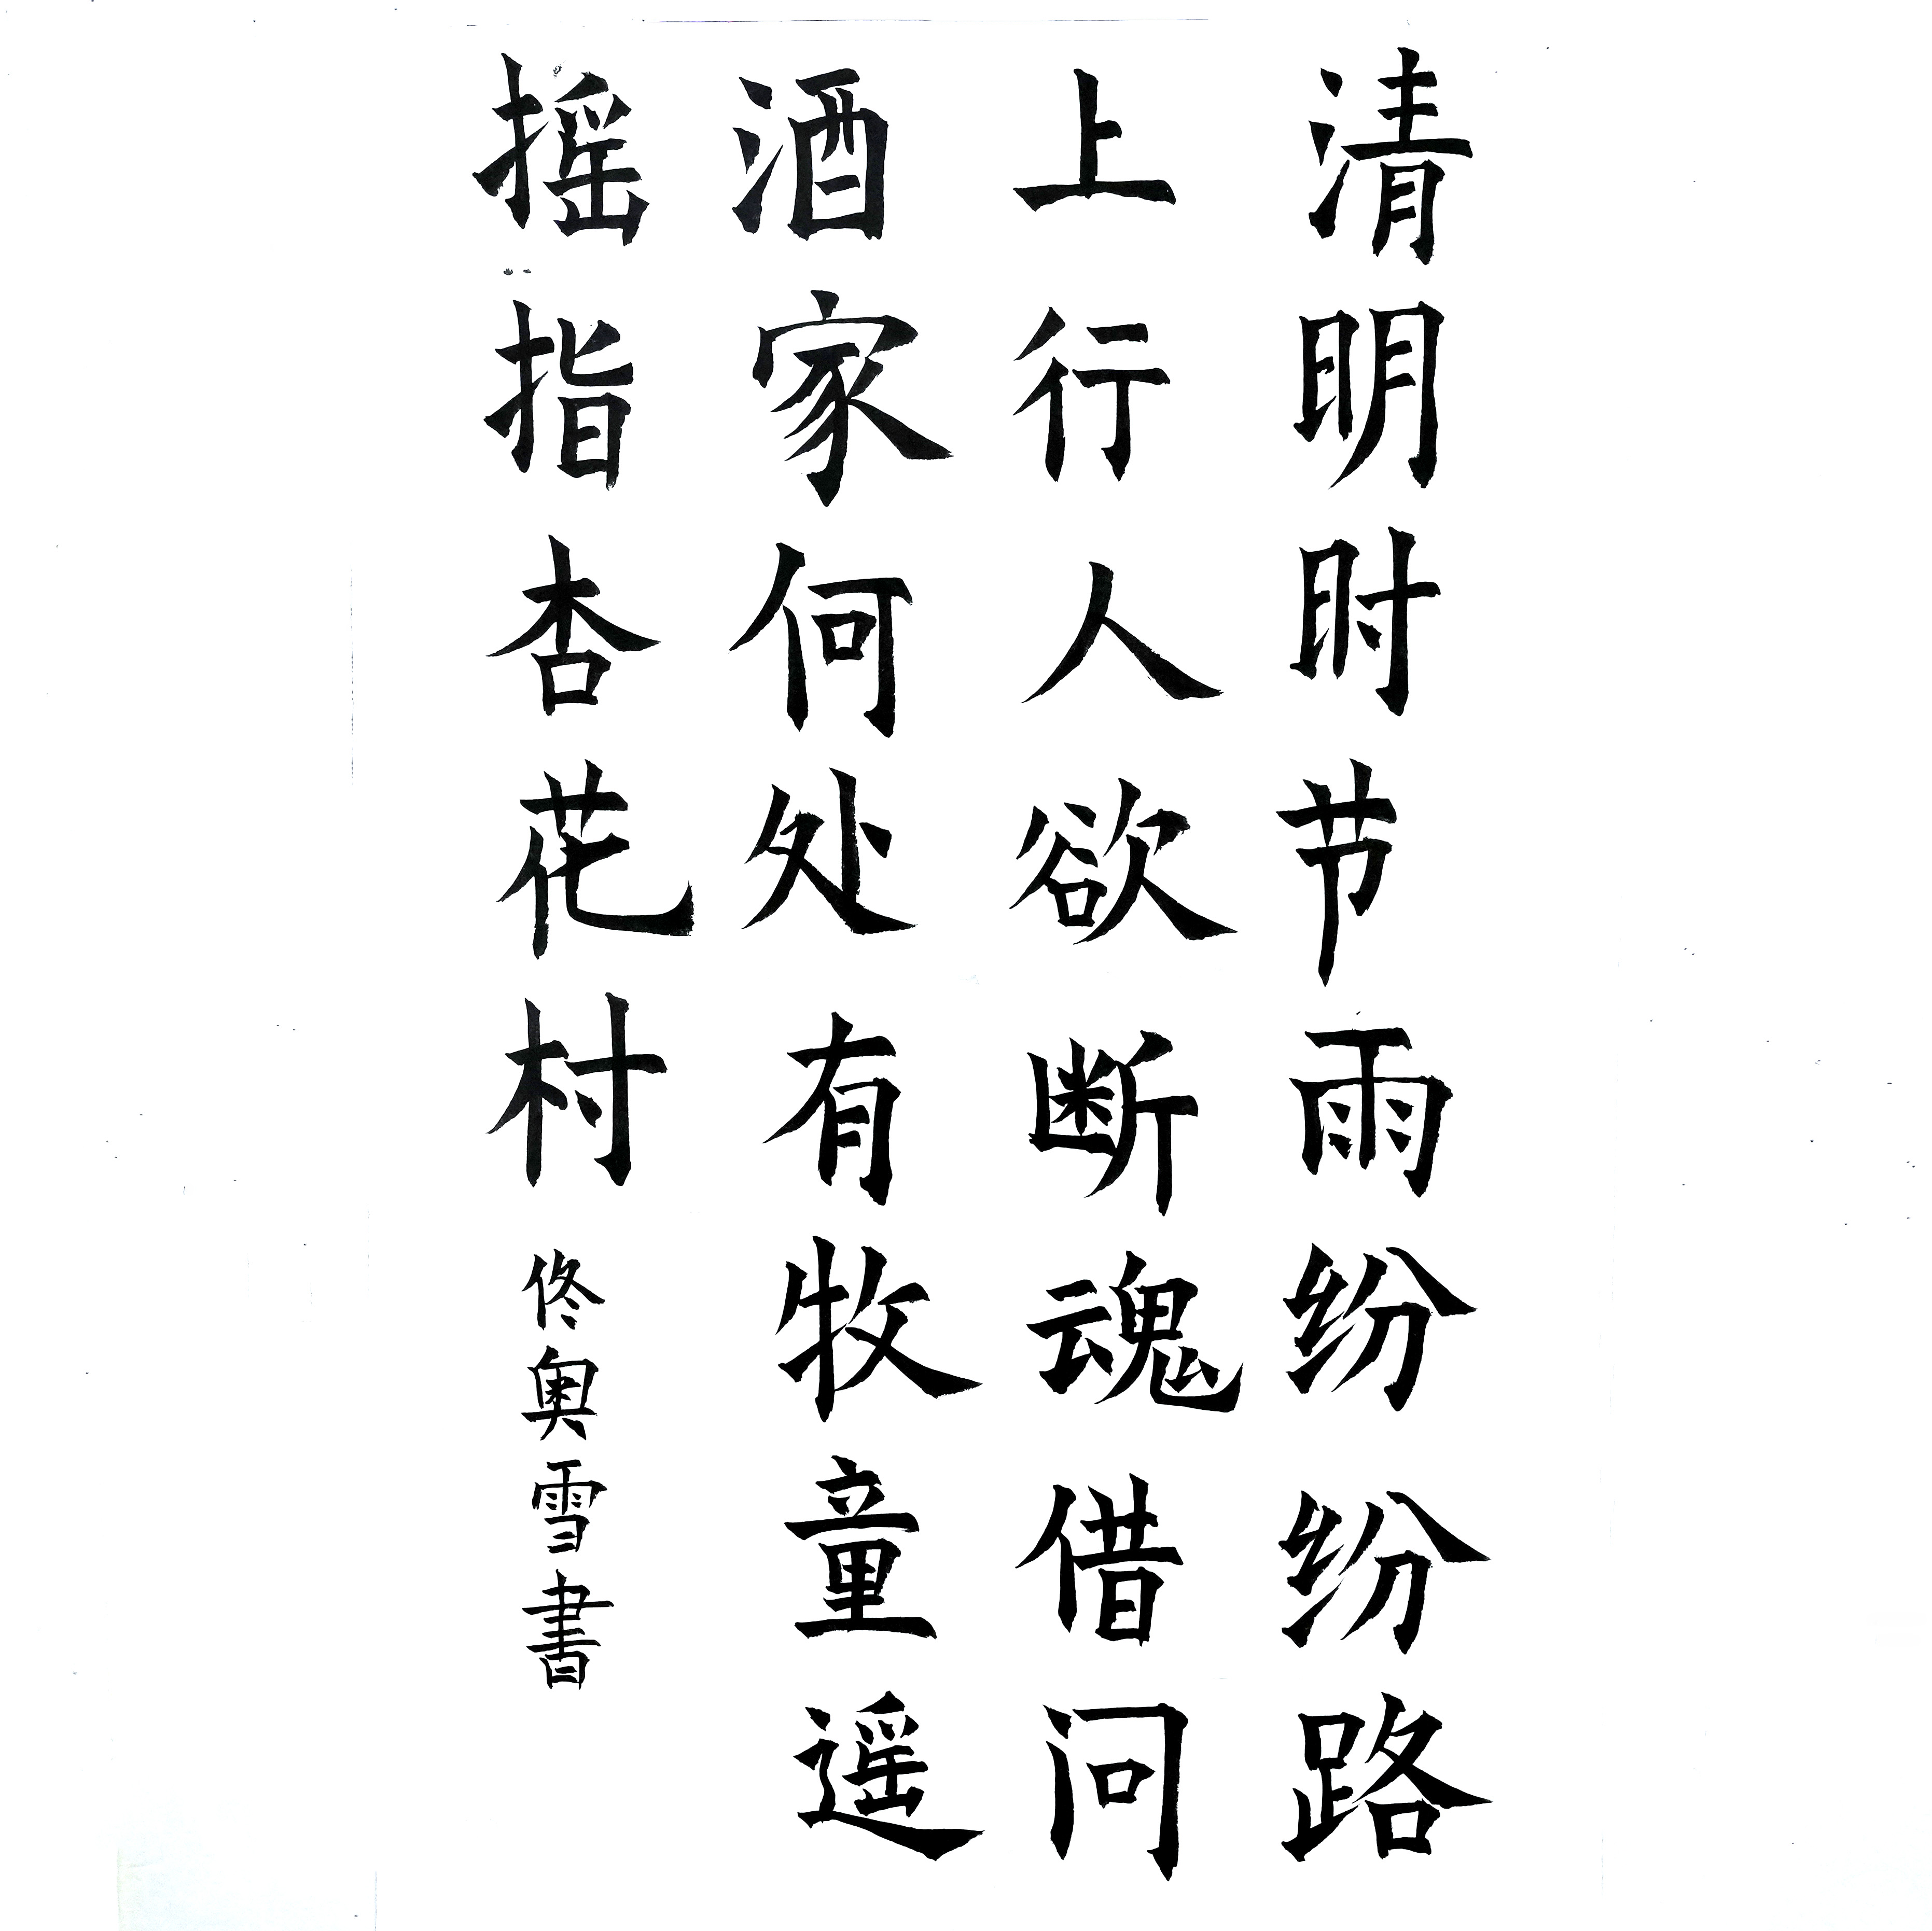 清明时节雨纷纷路
上行人欲断魂借问
酒家何处有牧童遥
摇指杏花村 佟奥雪書